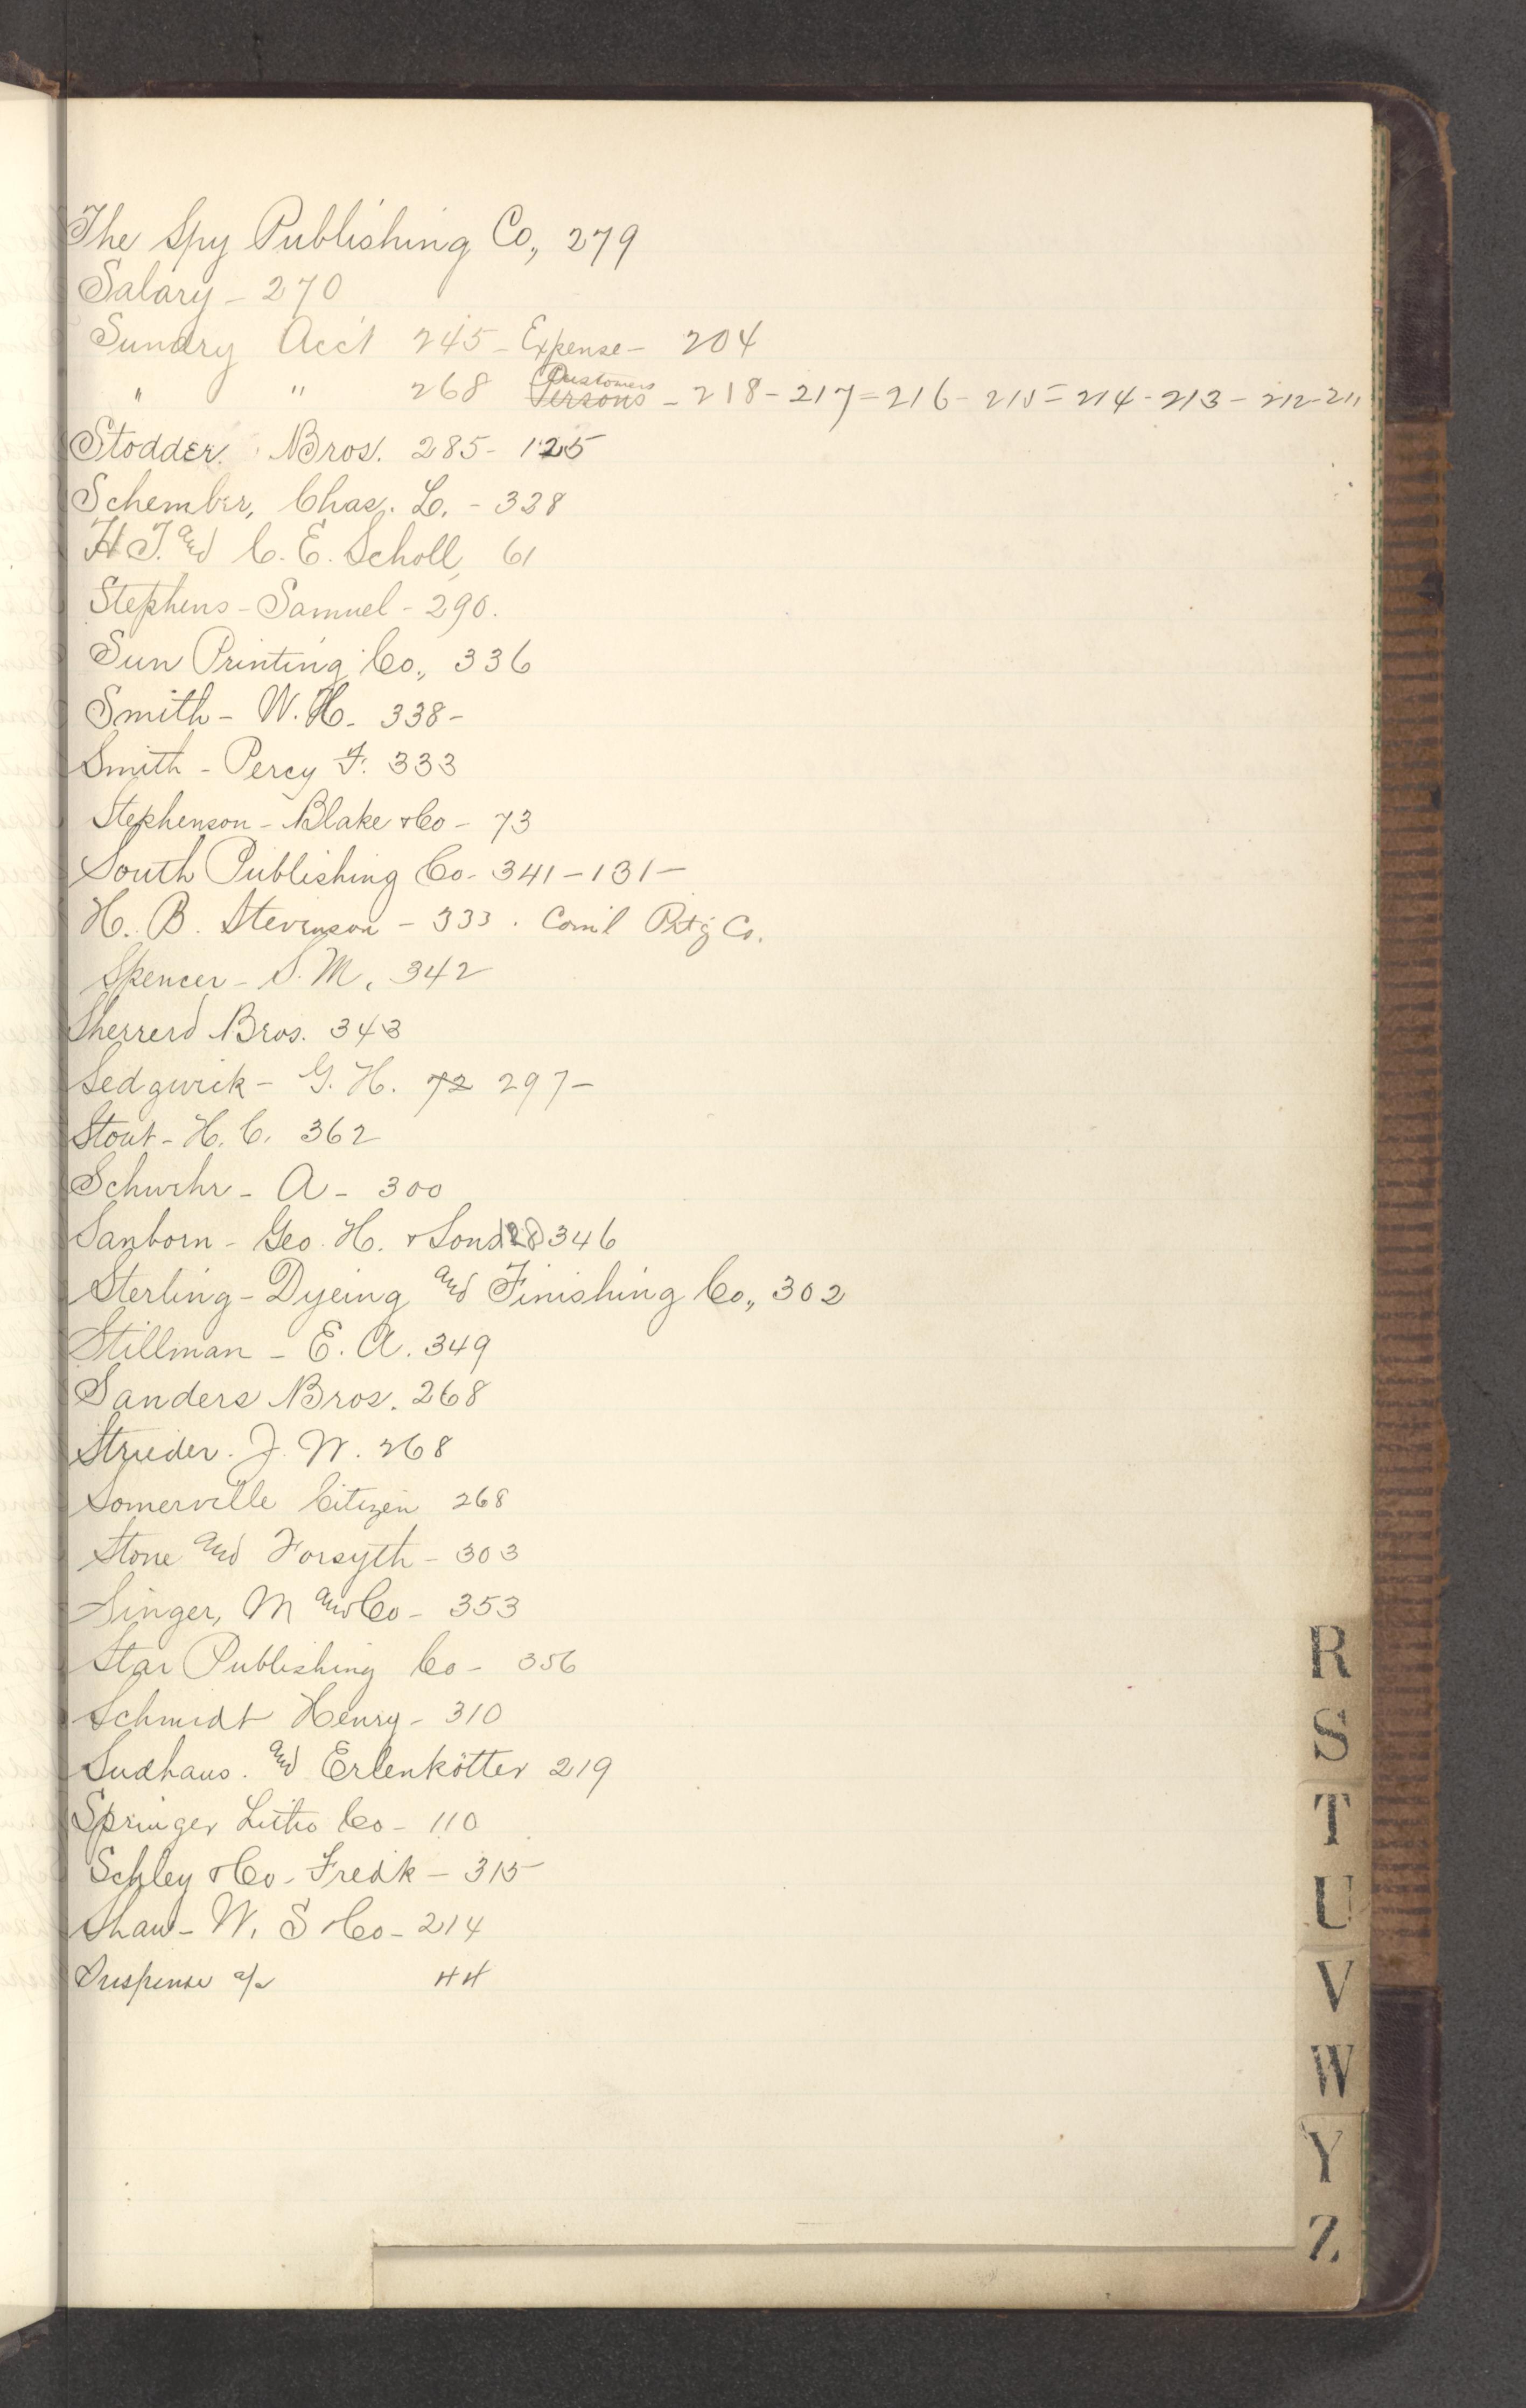 The Spy Publishing Co., 279
Salary - 270
Sundry Acc't 245 - Expense - 204
" " 268 Customers Persons - 218 - 217 = 216 - 215 = 214 - 213 - 212 - 211
Stodder Bros. 285 - 125
Schember, Chas. L. - 328
H J. and C. E. Scholl, 61
Stephens - Samuel - 290.
Sun Printing Co., 336
Smith - W. H. - 338 -
Smith - Percy F. 333
Stephenson - Blake & Co - 73
South Publishing Co - 341 - 131 -
H. B. Stevenson - 333. Com'l Prt'g Co.
Spencer - S. M. 342
Sherrerd Bros. 343
Sedgwick - G. H. 72 297 -
Stout - H. C. 362
Schwehr - A - 300
Sanborn - Geo. H. & Sons 346
Sterling - Dyeing and Finishing Co., 302
Stillman - E. A. 349
Sanders Bros. 268
Strieder. J. W. 268
Somerville Citizen 268
Stone and Forsyth - 303
Singer, M and Co - 353
Star Publishing Co - 356
Schmidt Henry - 310
Sudhaus. and Erlenkötter 219
Springer Litho Co - 110
Schley & Co - Fredk - 315
Shaw - W. S & Co - 214
Suspense a/c 44
R
S
T
U
V
W
Y
Z